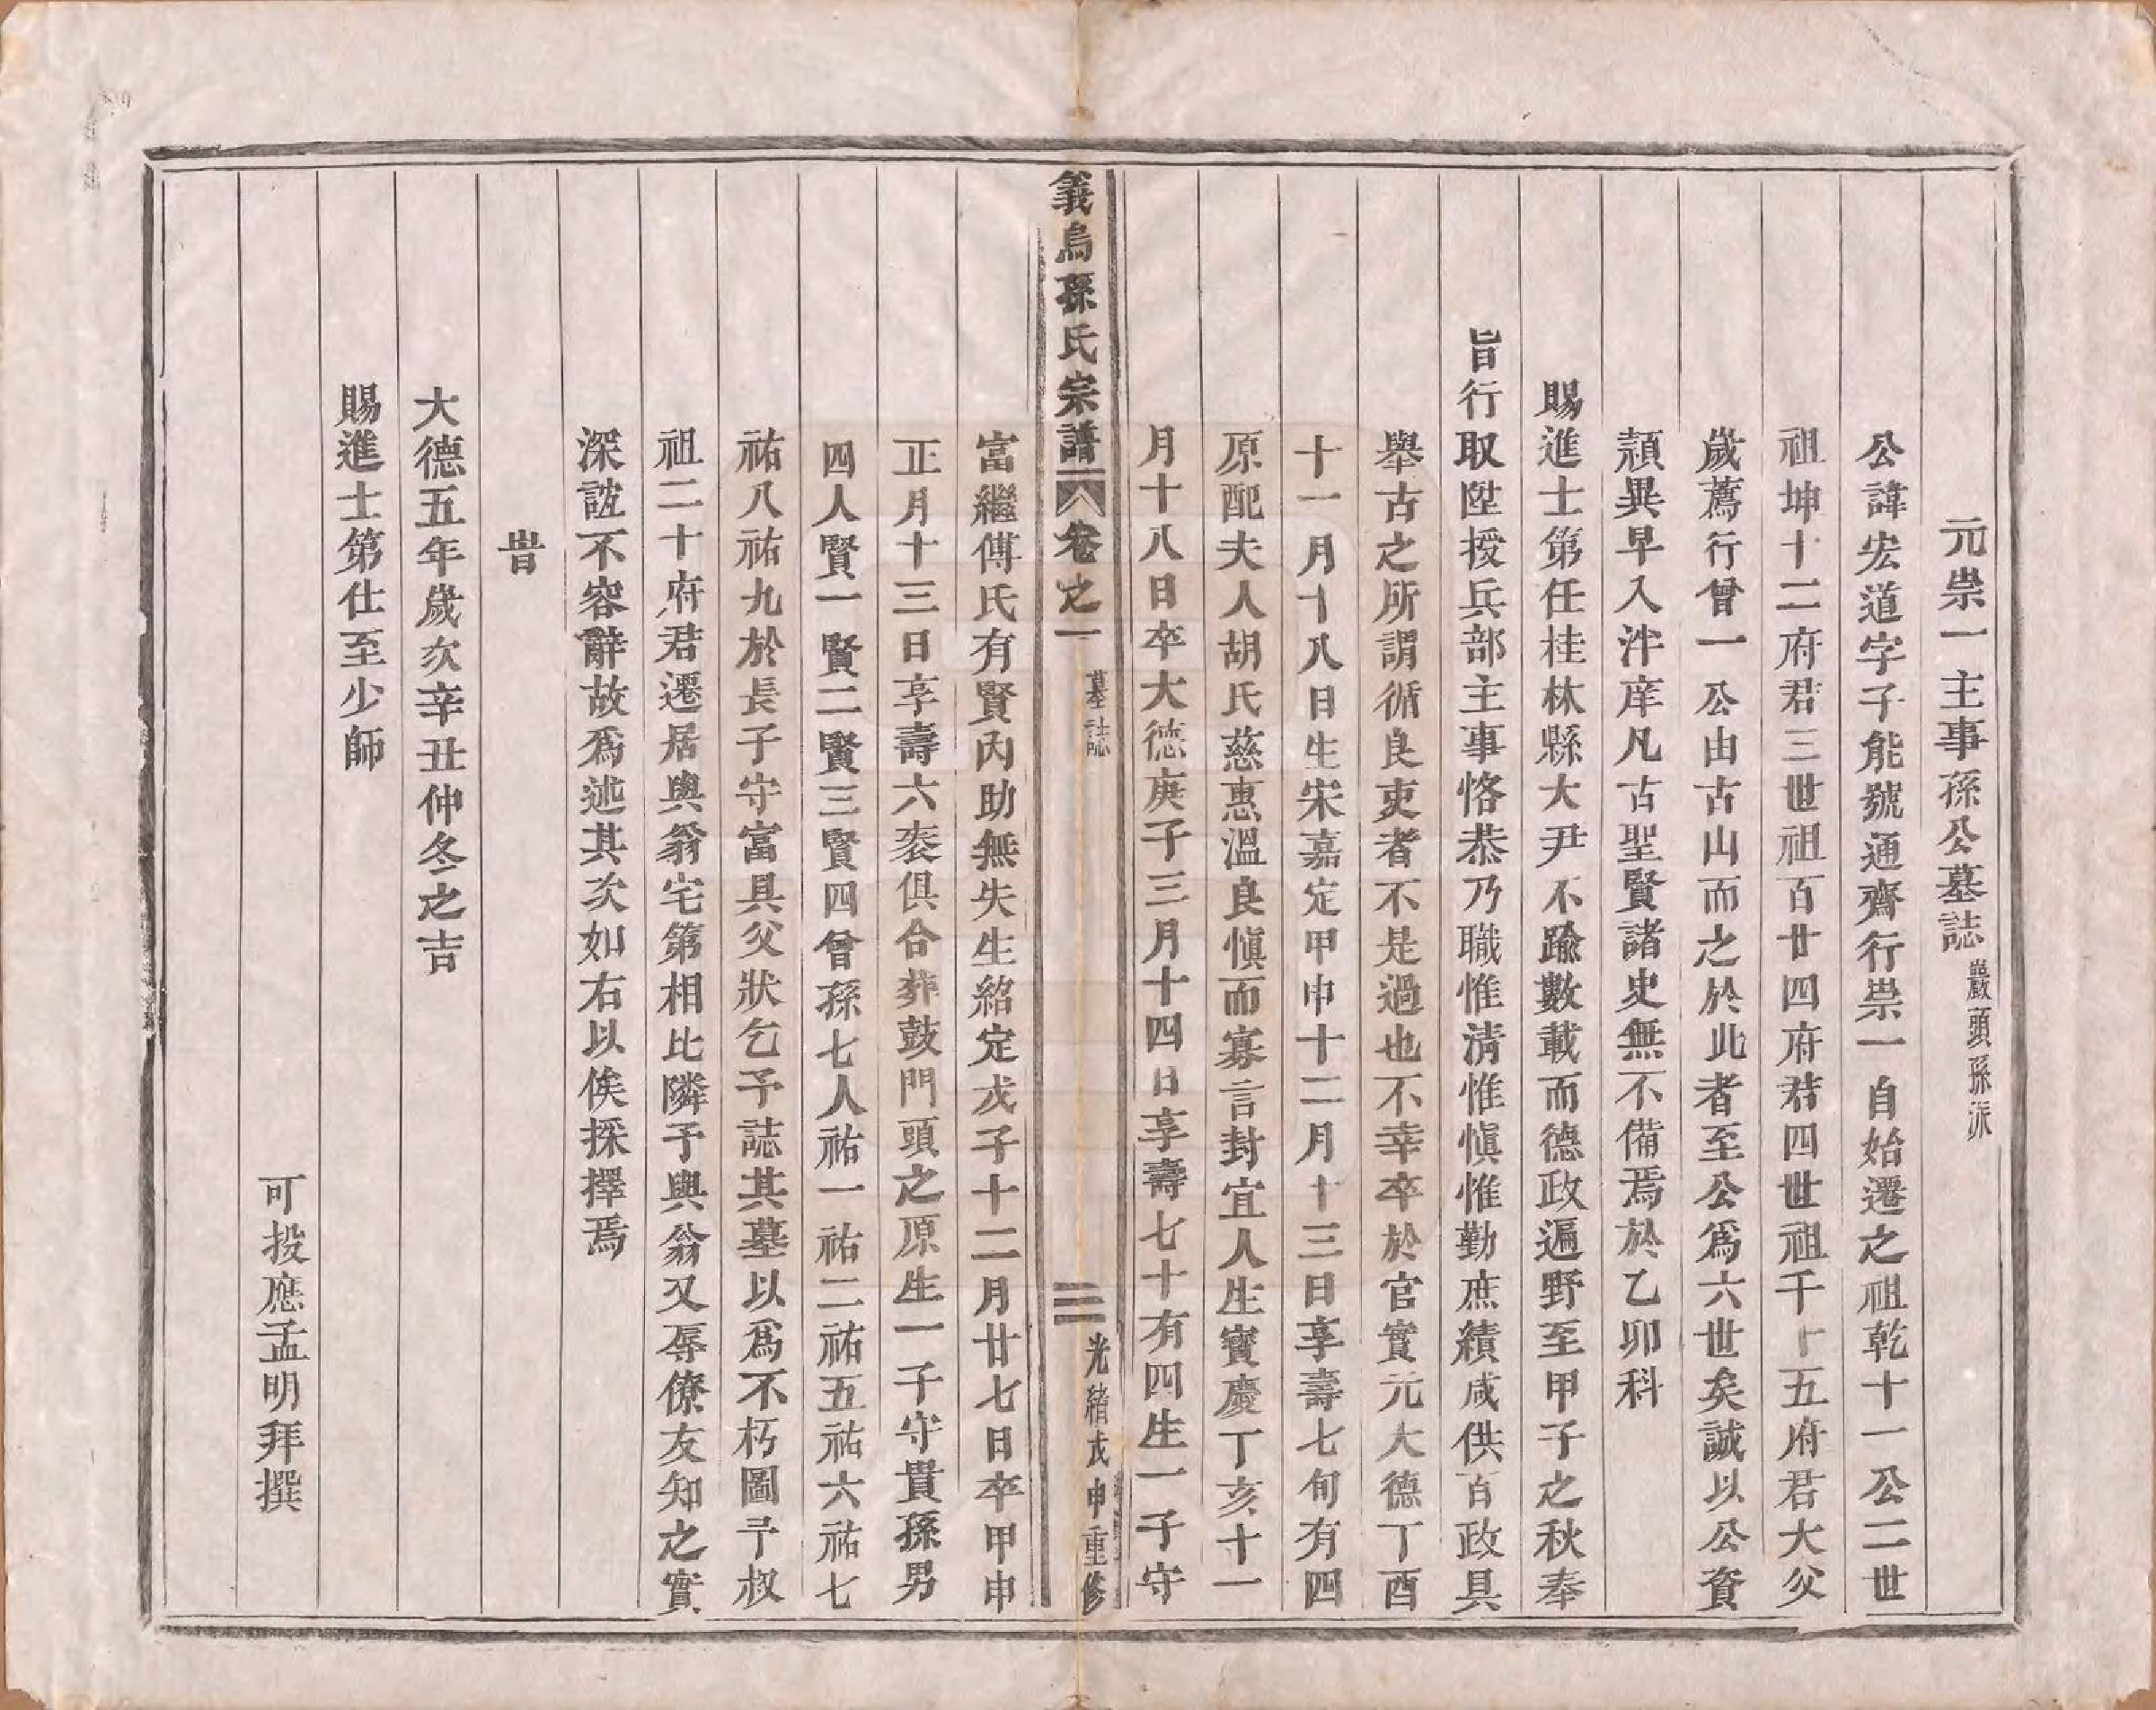 元祟一主事孫公墓誌 巖頭孫派
公諱宏道字子能號通齊行祟一自始遷之祖乾十一公二世
祖坤十二府君三世祖百廿四府君四世祖千十五府君大父
歲薦行曾一公由古山而之於此者至公爲六世矣誠以公資
頴異早入泮庠凡古聖賢諸史無不備焉於乙卯科
賜進士第任桂林縣大尹不踰數載而德政遍野至甲子之秋奉
旨行取陞授兵部主事恪恭乃職惟淸惟愼惟勤庶績咸供百政具
舉古之所謂循良吏者不是過也不幸卒於官實元大德丁酉
十一月十八日生宋嘉定甲申十二月十三日享壽七旬有四
原配夫人胡氏慈惠溫良愼而寡言封宜人生寳慶丁亥十一
月十八日卒大德庚子三月十四日享壽七十有四生一子守
義烏孫氏宗譜 卷之一 墓誌 三 光緒戊申重修
富繼傅氏有賢內助無失生紹定戊子十二月廿七日卒甲申
正月十三日享壽六袠俱合葬鼓門頭之原生一子守貴孫男
四人賢一賢二賢三賢四曾孫七人祐一祐二祐五祐六祐七
祐八祐九於長子守富具父狀乞予誌其墓以爲不朽圖予叔
祖二十府君遷居與翁宅第相比隣予與翁又辱僚友知之實
深誼不容辭故爲述其次如右以俟採擇焉
旹
大德五年歲次辛丑仲冬之吉
賜進士第仕至少師
可投應孟明拜撰